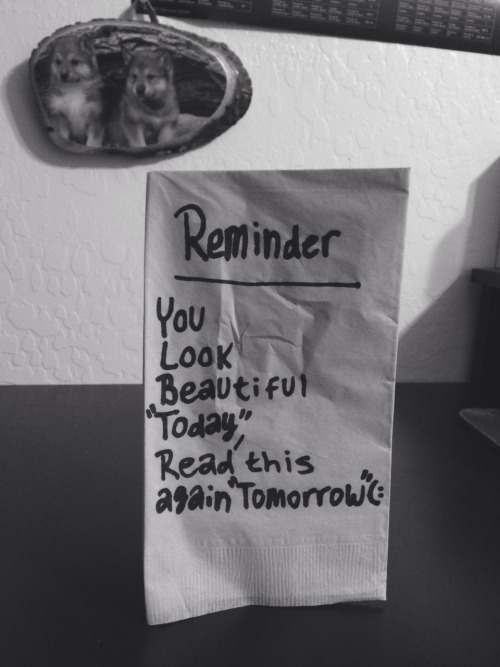 Reminder
You
Look
Beautiful
"Today",
Read this
again "Tomorrow"(: